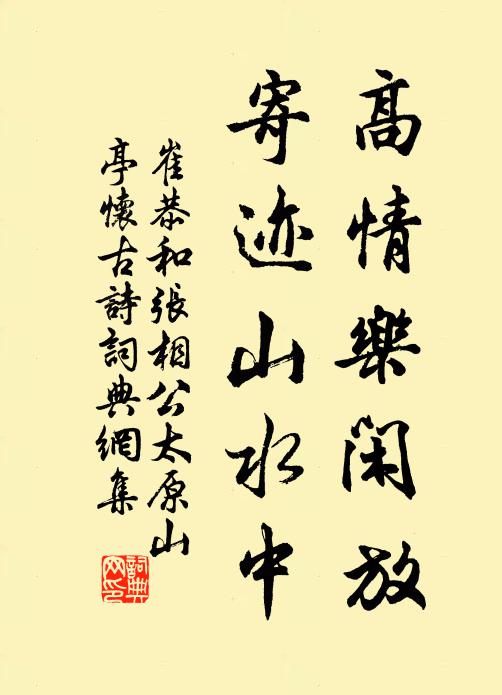 高情樂閑放
寄迹山水中
崔恭和張相公太原山
亭懷古詩詞典網集
詞典
网印